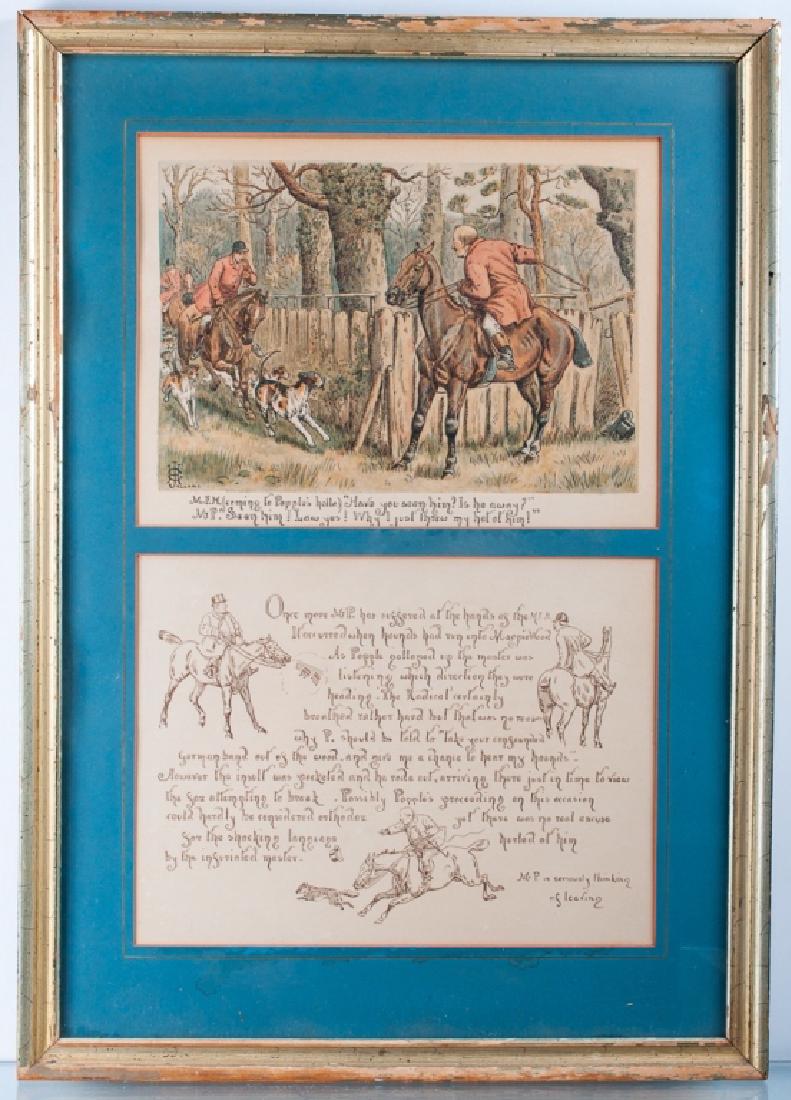 M.F.H (coming to Popple's holloa) "Have you seen him? Is he away?"
Mr P. "Seen him! Law yes! Why I just threw my hat at him!"
Once more Mr P. has suffered at the hands of the M.F.H.
It occurred when hounds had run into Magpiewood
As Popple galloped up the master was
listening which direction they were
heading. The Radical certainly
breathed rather hard but that was no reason
why P. should be told to "take your confounded
German band out of the wood, and give me a chance to hear my hounds".
However the insult was pocketed and he rode out, arriving there just in time to view
the fox attempting to break. Possibly Popple's proceeding on this occasion
could hardly be considered orthodox yet there was no real excuse
for the shocking language hurled at him
by the infuriated master.
Mr P. is seriously thinking
of leaving